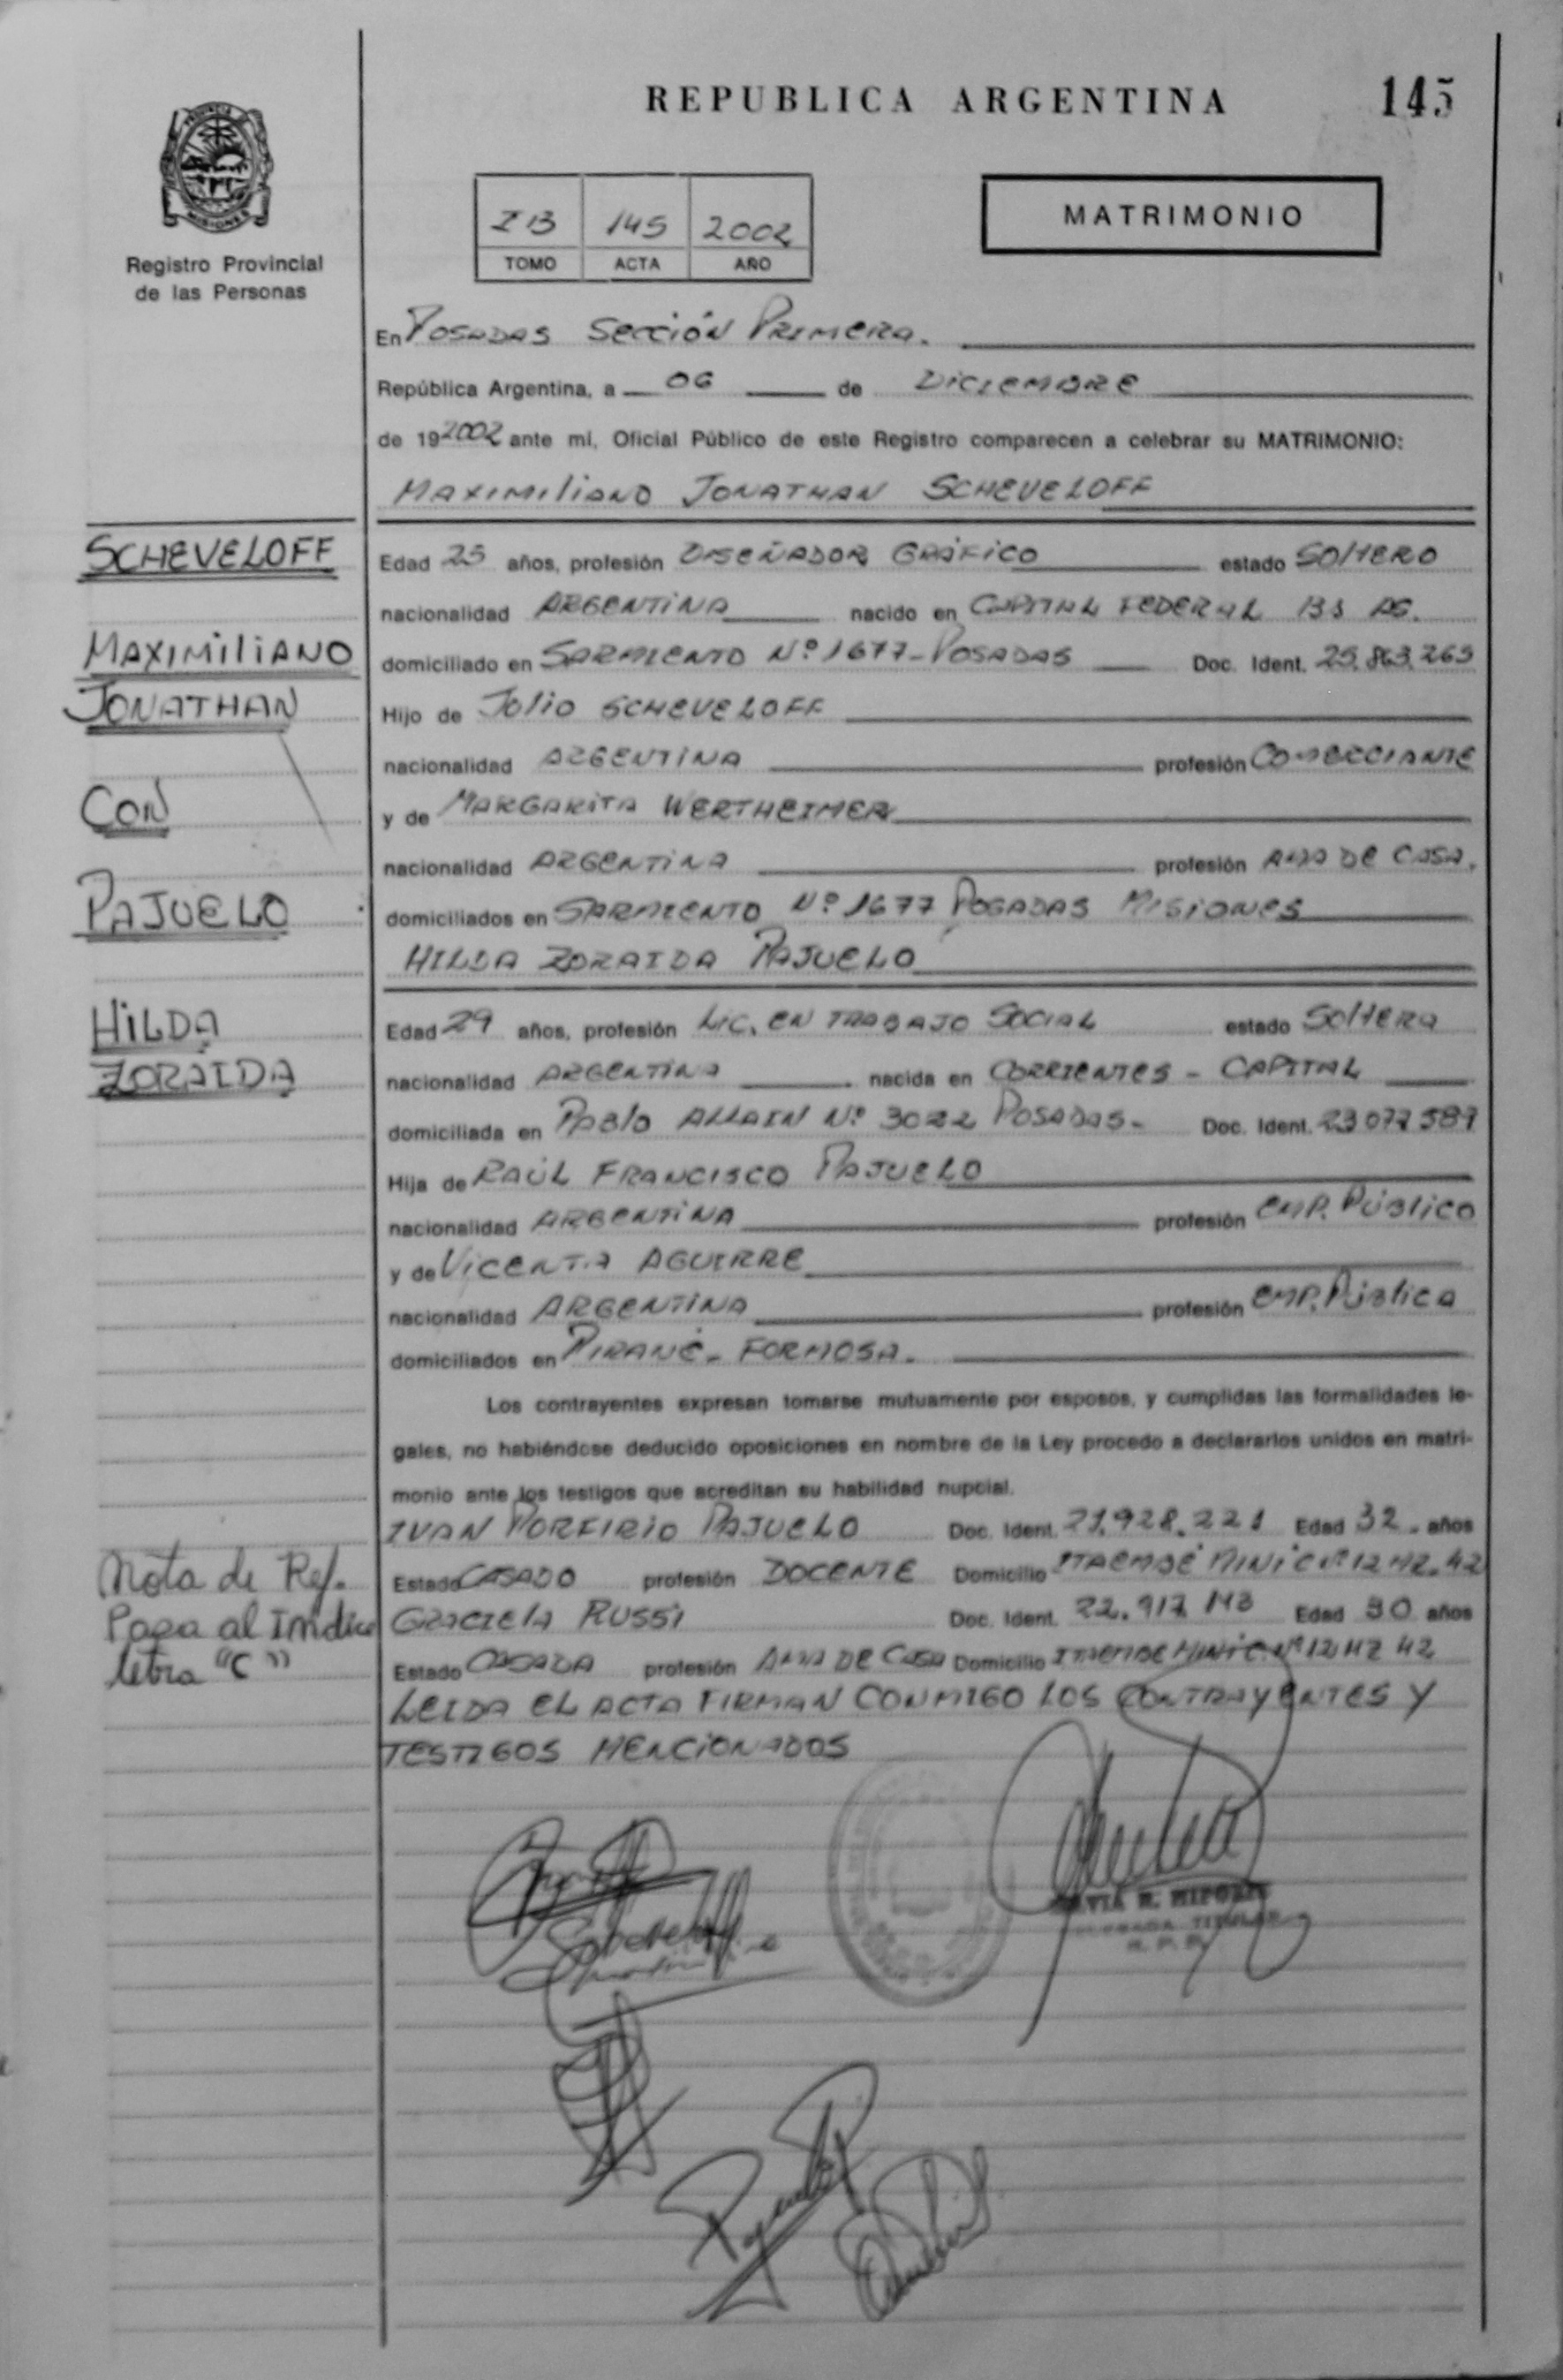 REPUBLICA ARGENTINA
145
PROVINCIA DE MISIONES
Registro Provincial
de las Personas
IB 145 2002
TOMO ACTA AÑO
MATRIMONIO
En POSADAS SECCIÓN PRIMERA.
República Argentina, a 06 de DICIEMBRE
de 19 2002 ante mí, Oficial Público de este Registro comparecen a celebrar su MATRIMONIO:
MAXIMILIANO JONATHAN SCHEVELOFF
SCHEVELOFF
MAXIMILIANO
JONATHAN
CON
PAJUELO
HILDA
ZORAIDA
Edad 25 años, profesión DISEÑADOR GRÁFICO estado SOLTERO
nacionalidad ARGENTINA nacido en CAPITAL FEDERAL BS AS.
domiciliado en SARMIENTO Nº 1677-POSADAS Doc. Ident. 25.863.265
Hijo de JULIO SCHEVELOFF
nacionalidad ARGENTINA profesión COMERCIANTE
y de MARGARITA WERTHEIMER
nacionalidad ARGENTINA profesión AMA DE CASA.
domiciliados en SARMIENTO Nº 1677 POSADAS MISIONES
HILDA ZORAIDA PAJUELO
Edad 29 años, profesión LIC. EN TRABAJO SOCIAL estado SOLTERA
nacionalidad ARGENTINA nacida en CORRIENTES - CAPITAL
domiciliada en PABLO ALLAIN Nº 3022 POSADAS- Doc. Ident. 23 077 587
Hija de RAÚL FRANCISCO PAJUELO
nacionalidad ARGENTINA profesión EMP. PÚBLICO
y de VICENTA AGUIRRE
nacionalidad ARGENTINA profesión EMP. PÚBLICA
domiciliados en PIRANÉ - FORMOSA.
Los contrayentes expresan tomarse mutuamente por esposos, y cumplidas las formalidades le-
gales, no habiéndose deducido oposiciones en nombre de la Ley procedo a declararlos unidos en matri-
monio ante los testigos que acreditan su habilidad nupcial.
IVAN PORFIRIO PAJUELO Doc. Ident. 21.928.221 Edad 32. años
Estado CASADO profesión DOCENTE Domicilio ITAEMBÉ MINÍ C Nº 12 MZ. 42
GRACIELA RUSSI Doc. Ident. 22.917 113 Edad 30 años
Estado CASADA profesión AMA DE CASA Domicilio ITAEMBE MINI C Nº 12 MZ 42
LEIDA EL ACTA FIRMAN CONMIGO LOS CONTRAYENTES Y
TESTIGOS MENCIONADOS
Nota de Ref.
Pasa al Indice
letra "C"
R.
TITULAR